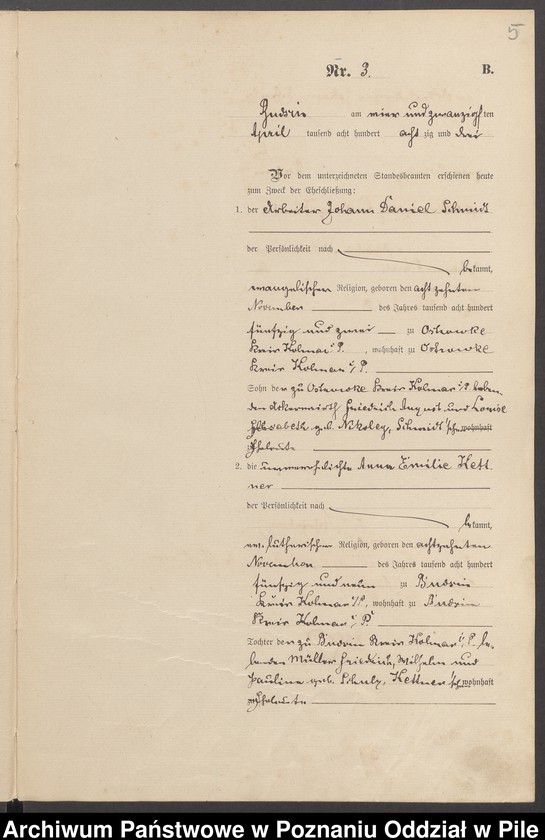 5
Nr. 3. B.
Budsin am vier und zwanzigsten
April tausend acht hundert acht zig und drei
Vor dem unterzeichneten Standesbeamten erschienen heute
zum Zweck der Eheschließung:
1. der Arbeiter Johann Daniel Schmidt
der Persönlichkeit nach
bekannt,
evangelischer Religion, geboren den acht zehnten
November des Jahres tausend acht hundert
fünfzig und zwei zu Ostrowke
Kreis Kolmar i/P. , wohnhaft zu Ostrowke
Kreis Kolmar i/P.
Sohn der zu Ostrowke Kreis Kolmar i/P. leben
den Ackerwirth Friedrich August und Louise
Elisabeth geb. Schmidt'schen wohnhaft
Eheleute
2. die unverehelichte Anna Emilie Kett
ner
der Persönlichkeit nach
bekannt,
ev. lutherischer Religion, geboren den achtzehnten
November des Jahres tausend acht hundert
fünfzig und neun zu Budsin
Kreis Kolmar i/P., wohnhaft zu Budsin
Kreis Kolmar i/P.
Tochter der zu Budsin Kreis Kolmar i/P. le-
benden Müller Friedrich, Wilhelm und
Pauline geb. Schulz, Kettner'schen wohnhaft
Eheleute
Archiwum Państwowe w Poznaniu Oddział w Pile